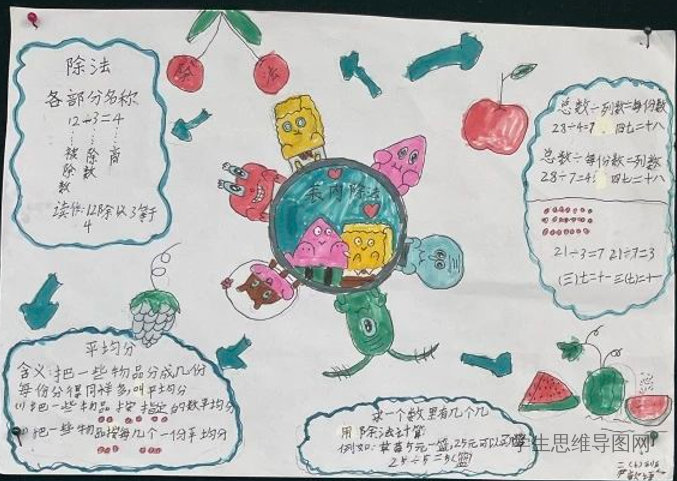 除法
除法
各部分名称
12÷3=4
被除数
除数
商
读作:12除以3等于
4
表内除法
总数÷列数=每份数
28÷4=7 四七二十八
总数÷每份数=列数
28÷7=4 四七二十八
21÷3=7 21÷7=3
(三)七二十一 三(七)二十一
平均分
含义:把一些物品分成几份
每份分得同样多,叫平均分
(1)把一些物品按指定的数平均分
把一些物品按每几个一份平均分
求一个数里有几个几
用除法计算
例如:草莓5元一篮,25元可以
25÷5=5(篮)
学生思维导图网